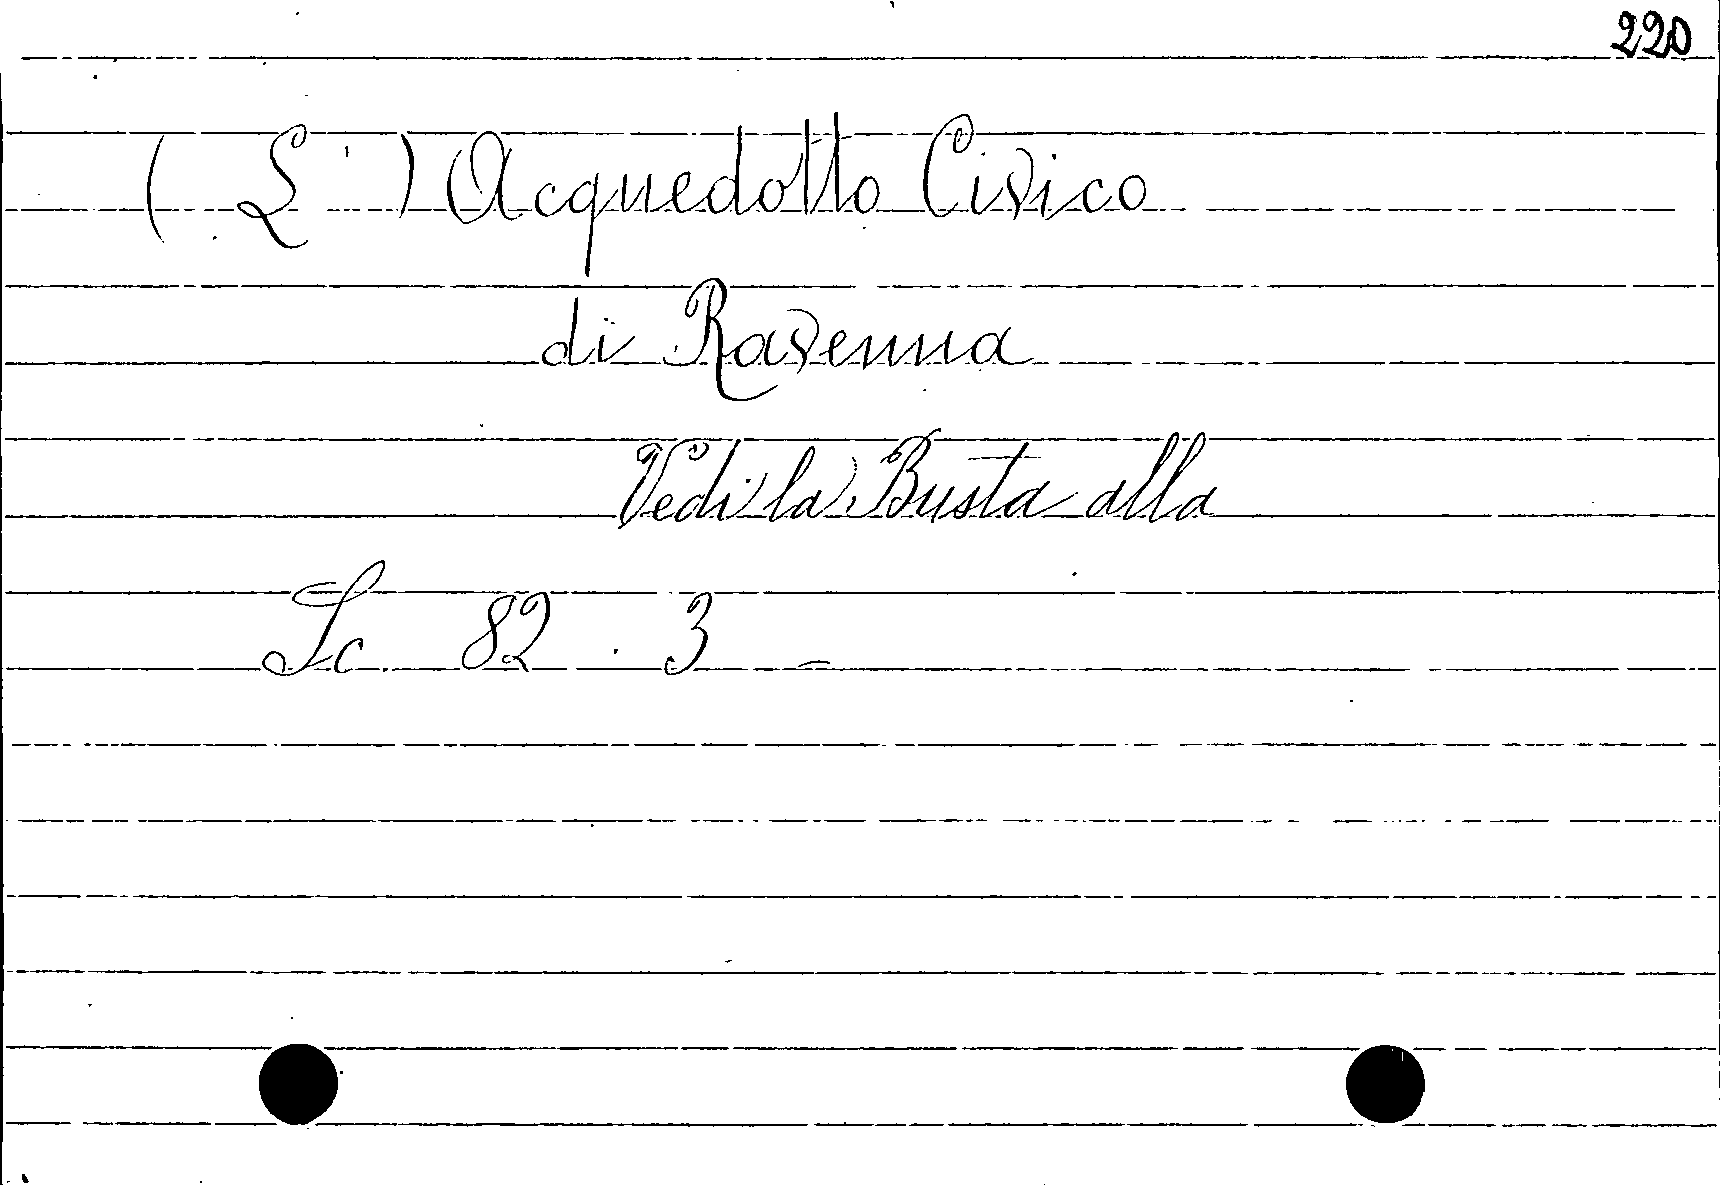 220
(L') Acquedotto Civico
di Ravenna
Vedi la Busta alla
Sc 82 . 3 -